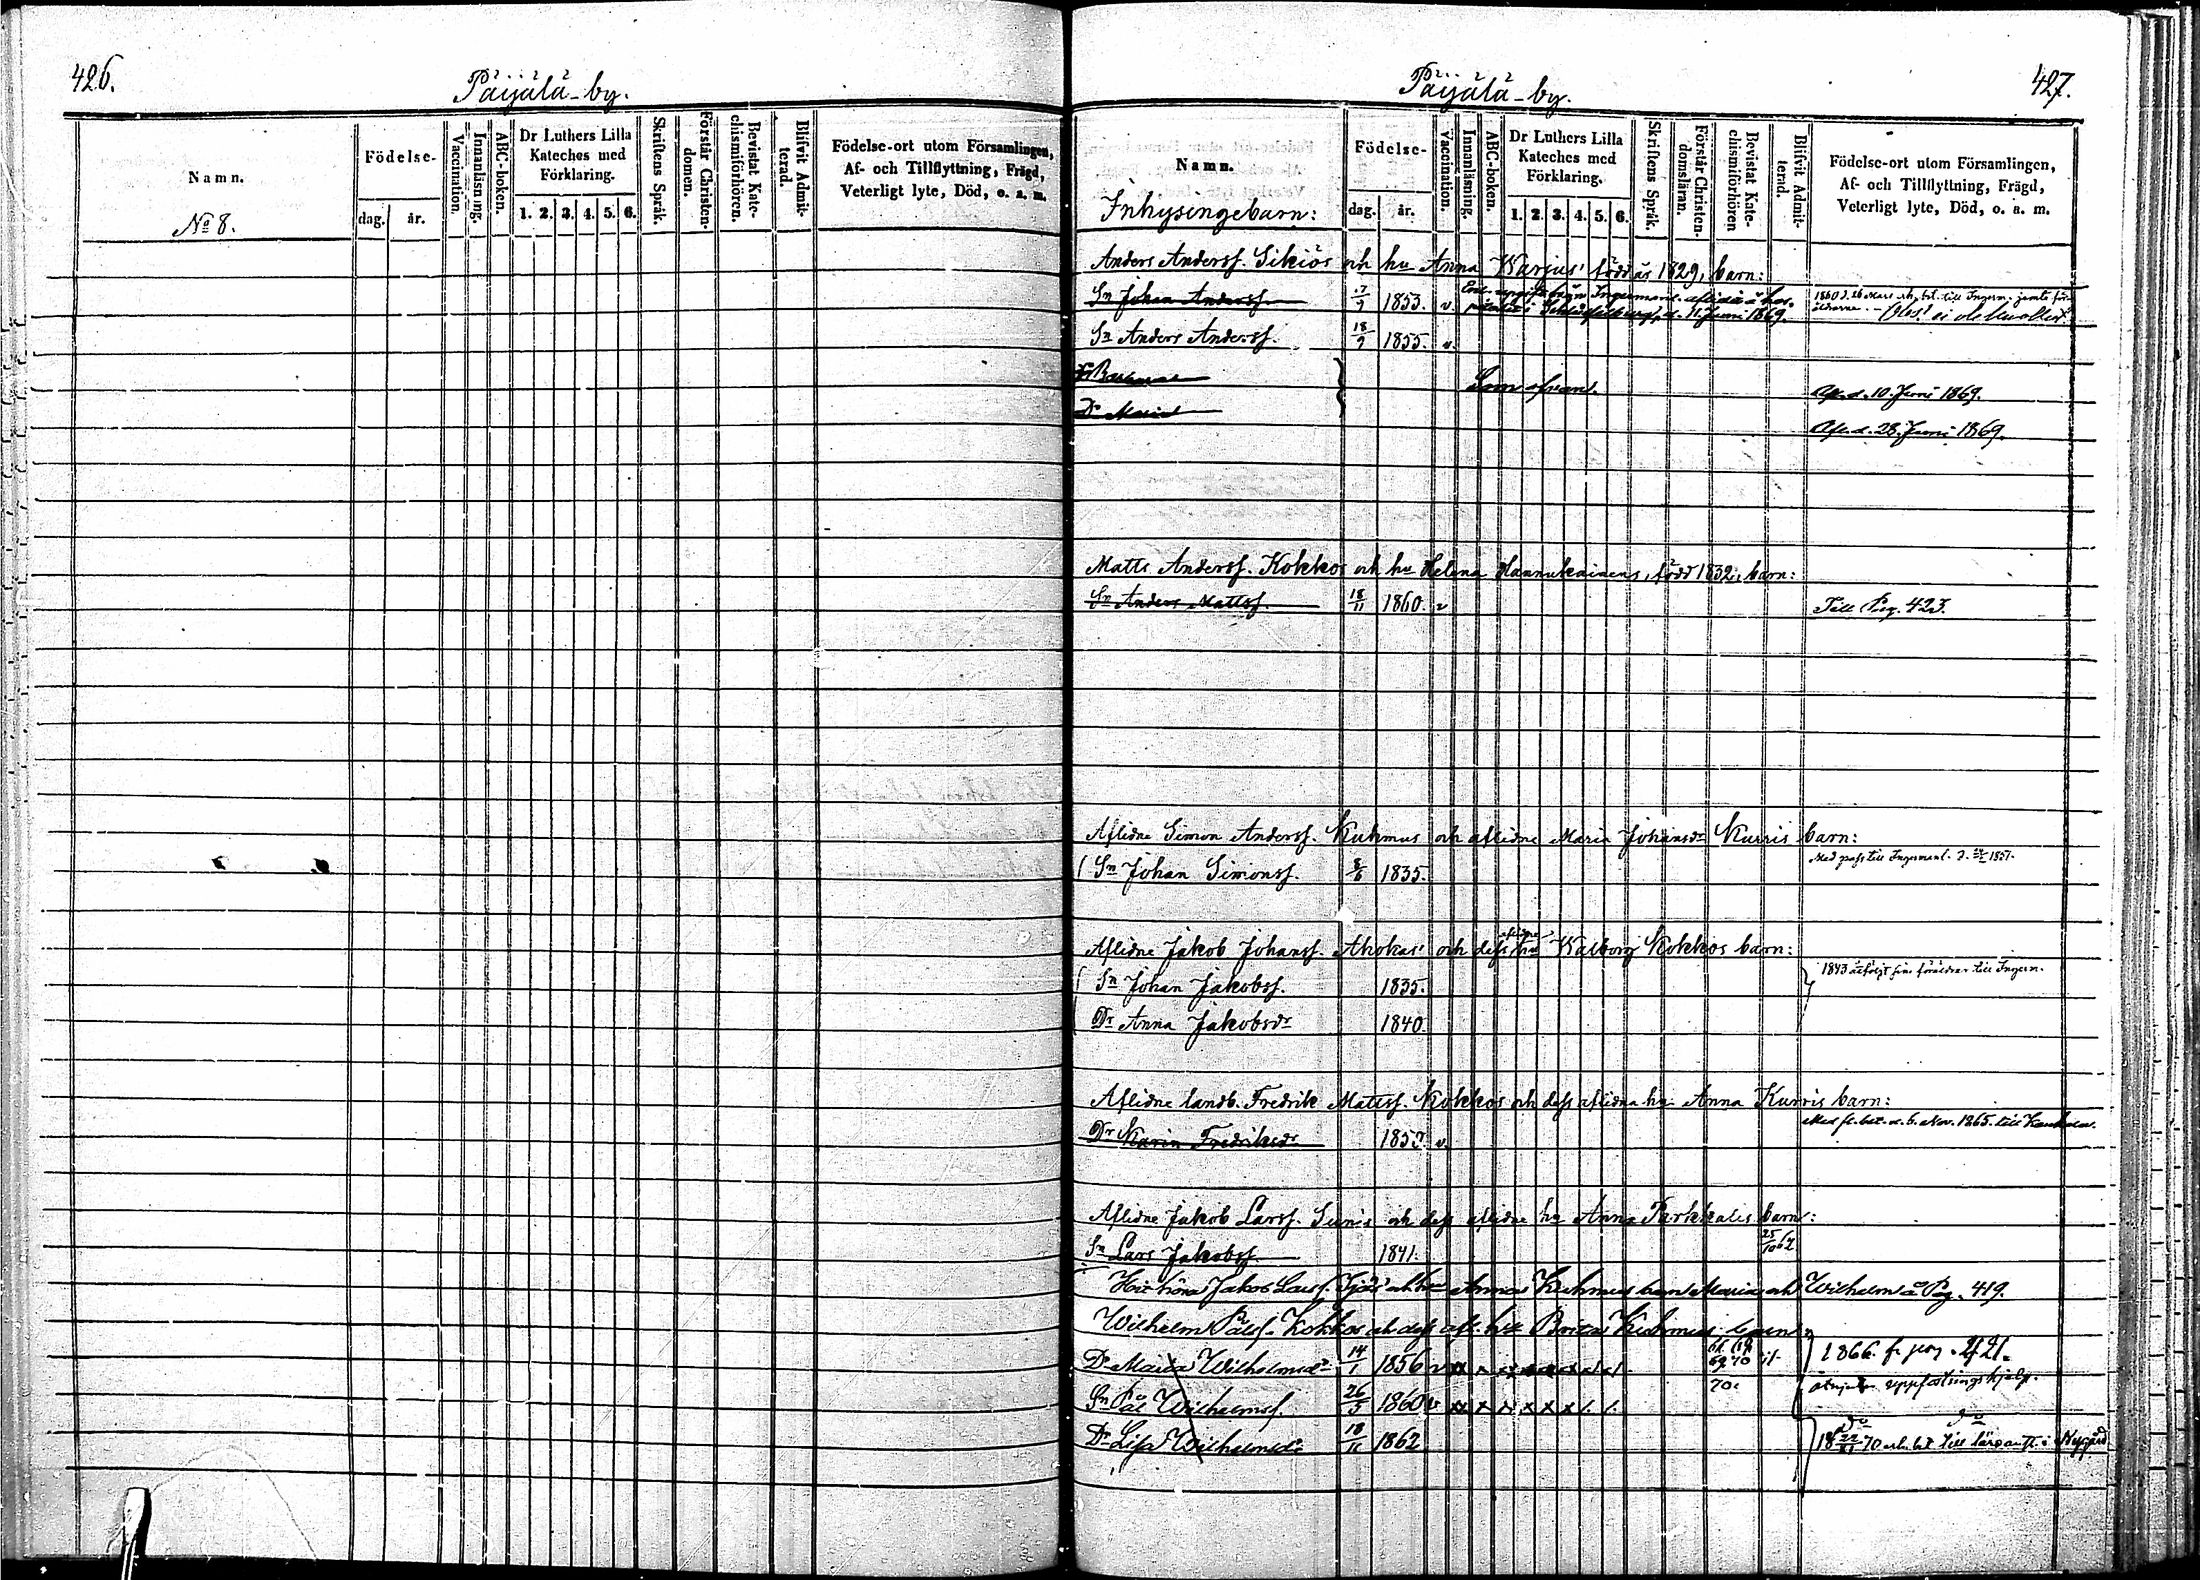 426.
Päijälä-by.
Namn.
Födelse-
dag.
år.
Vaccination.
Innanläsning.
ABC-boken.
Dr Luthers Lilla
Kateches med
Förklaring.
1. 2. 3. 4. 5. 6.
Skriftens Språk.
Förstår Christen-
domen.
Bevistat Kate-
chismiförhören.
Blifvit Admit-
terad.
Födelse-ort utom Församlingen,
Af- och Tillflyttning, Frägd,
Veterligt lyte, Död, o. a. m.
No 8.
427.
Päijälä-by.
Namn.
Födelse-
dag.
år.
Vaccination.
Innanläsning.
ABC-boken.
Dr Luthers Lilla
Kateches med
Förklaring.
1. 2. 3. 4. 5. 6.
Skriftens Språk.
Förstår Christen-
domsläran.
Bevistat Kate-
chismiförhören
Blifvit Admit-
terad.
Födelse-ort utom Församlingen,
Af- och Tillflyttning, Frägd,
Veterligt lyte, Död, o. a. m.
Inhysingebarn:
Anders Andersf. Sikiös och hu Anna Warjus' född år 1829, barn:
Sn Johan Andersf. 17/7 1853. v. från Ingermanl. aflidit å hos-
d. 11 Juni 1869.
1860 d. 26 Mars till Ingerm. jemte för-
äldrarne Obs!
Sn Anders Andersf. 18/7 1855. v.
Barbara Som ofvan. Afl. d. 10. Juni 1869.
Dr Maria Afl. d. 28. Juni 1869.
Matts Andersf. Kokkos och hu Helena Hannukainens, född 1832, barn:
Sn Anders Mattsf. 18/11 1860. v Till Pag. 423.
Aflidne Simon Andersf. Kuhmus och aflidne Maria Johansdr Kurris barn:
Sn Johan Simonsf. 8/6 1835. Med pass till Ingermanl. d. 1857.
Aflidne Jakob Johansf. Ahokas' och dess aflidne hu Walborg Kokkos barn:
Sn Johan Jakobsf. 1835. 1843 åtföljt sina föräldrar till Ingerm.
Dr Anna Jakobsdr 1840.
Aflidne landb. Fredrik Mattsf. Kokkos och dess aflidna hu Anna Kurris barn:
Dr Karin Fredriksdr 1853 v. Med fl. bet. d. 6. Nov. 1865. till
Aflidne Jakob Larsf. Sunis och dess aflidne hu Anna Parkkalis barn:
Sn Lars Jakobsf. 1841. 25/10 62
Hit höra Jakob Larsf. och hu Anna Kuhmus barn Maria och Wilhelm å Pag. 419.
Wilhelm Pålsf. Kokkos och dess afl. hu Brita Kuhmus barn:
Dr Maria Wilhelmsdr 14/1 1856 v 69 70 1866. fr. pag. 421.
Sn Pål Wilhelmsf. 26/5 1860 v x x x x x x 70. uppfostringshjelp.
Dr Lisa Wilhelmsdr 18/11 1862 do do